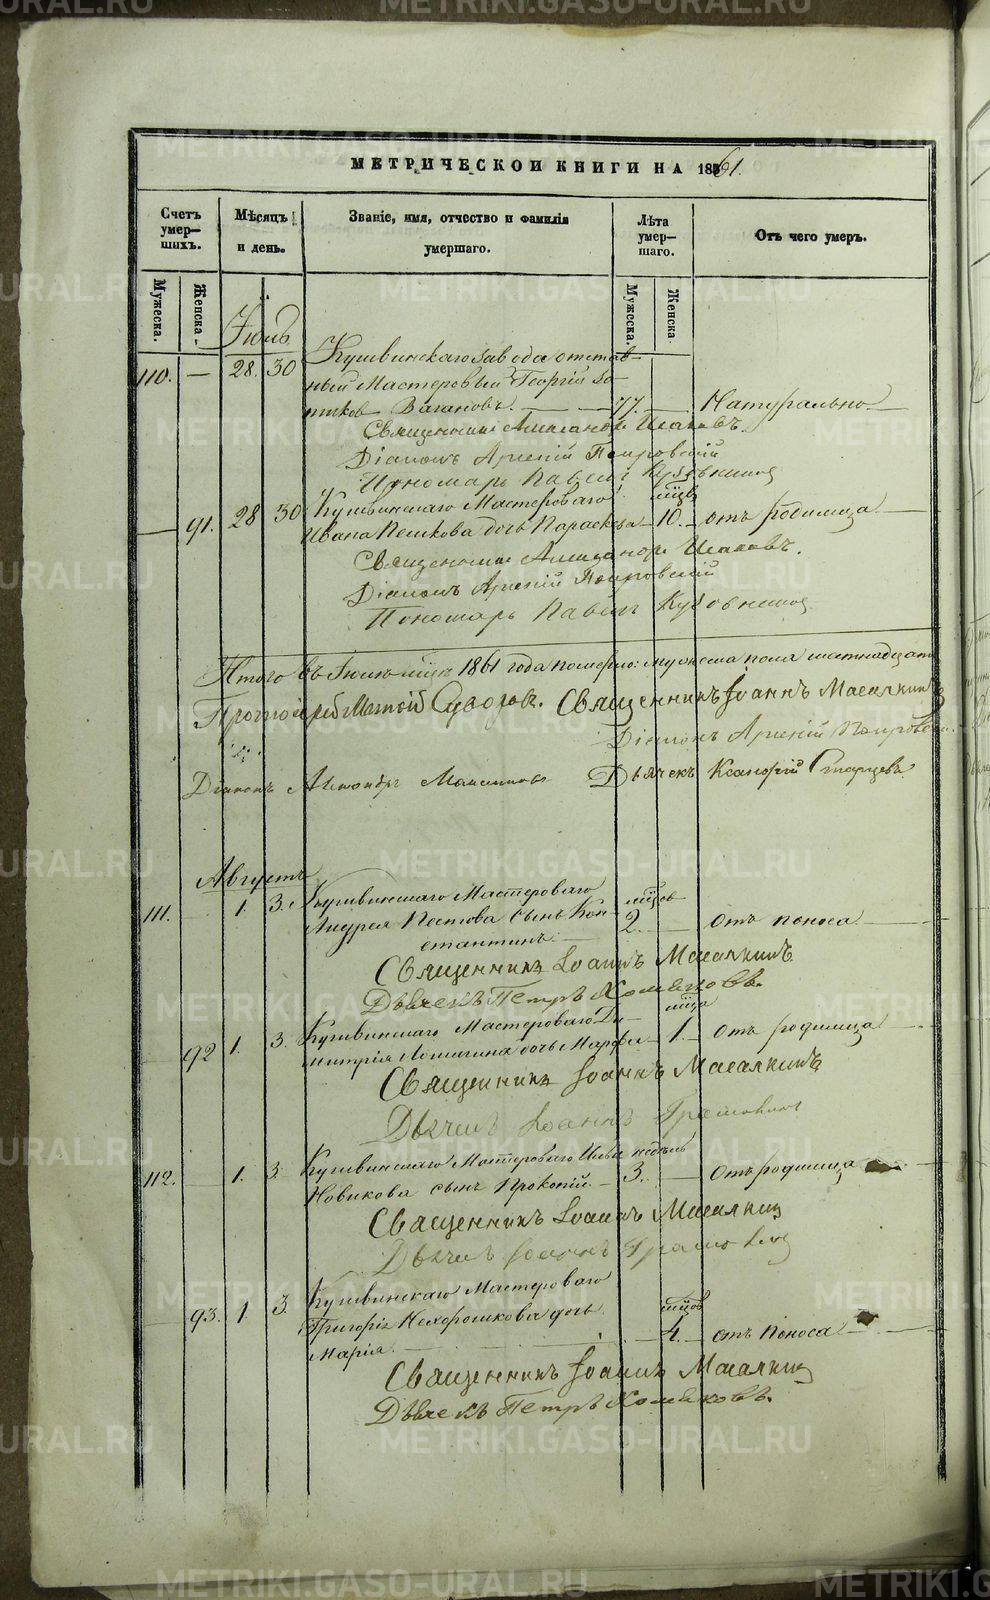 МЕТРИЧЕСКОЙ КНИГИ НА 1861.
Счетъ умер—шихъ.
Мѣсяцъ и день.
Званіе, имя, отчество и фамилія умершаго.
Лѣта умер—шаго.
Отъ чего умеръ.
Мужеска.
Женска.
Мужеска.
Женска
Іюль
Кушвинскаго завода отстав-
110. — 28. 30 ный Мастеровый Георгій
Вагановъ. — 77. — Натурально —
Священникъ Александръ Исаковъ.
Діаконъ Арсеній Покровскій
Пономарь Павелъ
Кушвинскаго Мастероваго мцв
— 91. 28 30 Ивана Пешкова дочь Параскева — 10. — отъ родимца —
Священникъ Александръ Исаковъ.
Діаконъ Арсеній Покровскій
Пономарь Павелъ
Итого въ Іюлѣ мцѣ 1861 года померло: мужеска пола
Протоіерей Суворовъ. Священникъ Іоаннъ Масалкинъ
Діаконъ Арсеній Покровскій
Діаконъ Дьячекъ Старцевъ
Августъ
111. — 1. 3. Кушвинскаго Мастероваго мцев
Андрея Постова сынъ Кон- 2. — отъ поноса —
стантинъ. —
Священникъ Іоаннъ Масалкинъ
Дьячекъ Петръ Хомяковъ.
Кушвинскаго Мастероваго Ди- мца
— 92 1. 3. митрія дочь Марфа — 1. — отъ родимца —
Священникъ Іоаннъ Масалкинъ
Дьячекъ Іоаннъ
112. — 1. 3. Кушвинскаго Мастероваго Ильи недѣль
Новикова сынъ Прокопій. — 3. — отъ родимца
Священникъ Іоаннъ Масалкинъ
Дьячекъ Іоаннъ
— 93. 1. 3. Кушвинскаго Мастероваго
Григорія Нехорошкова дочь мцов
Марія. — 4. — отъ поноса —
Священникъ Іоаннъ Масалкинъ
Дьячекъ Петръ Хомяковъ.
METRIKI.GASO-URAL.RU